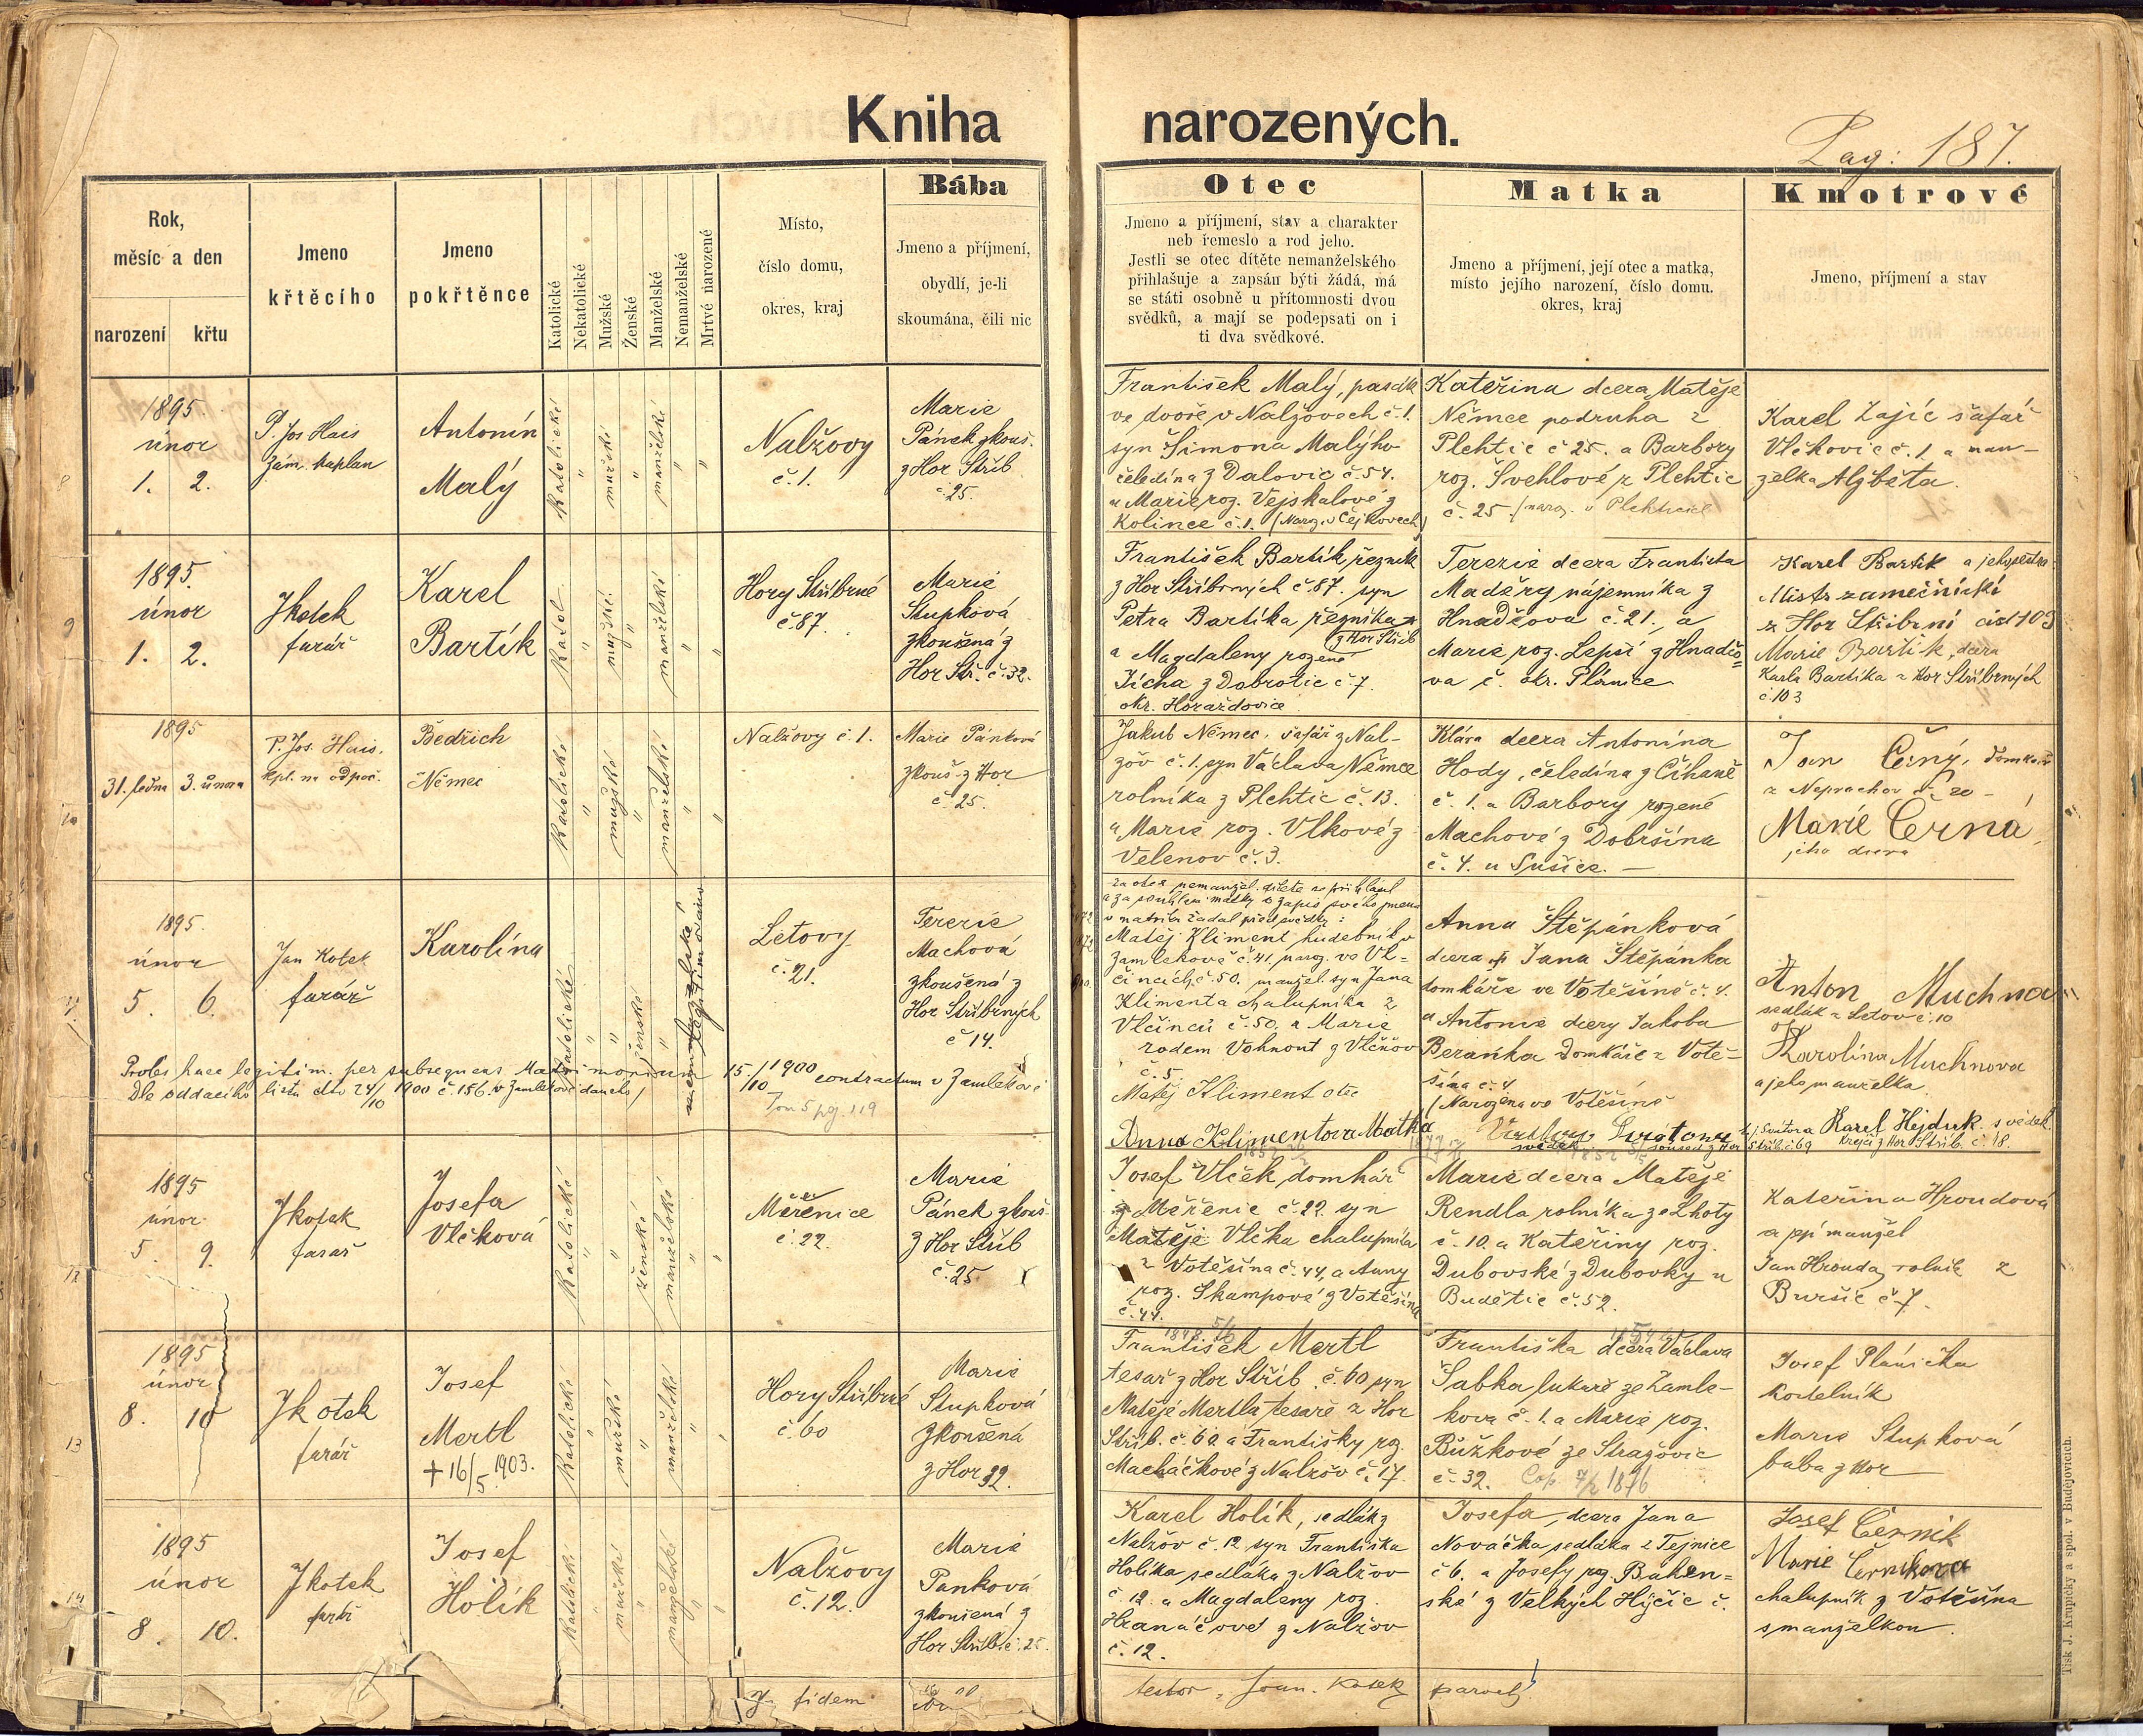 Kniha narozených.
Pag: 187.
Rok,
měsíc a den
narození křtu
Jmeno
křtěcího
Jmeno
pokřtěnce
Katolické
Nekatolické
Mužské
Ženské
Manželské
Nemanželské
Mrtvě narozené
Místo,
číslo domu,
okres, kraj
Bába
Jmeno a příjmení,
obydlí, je-li
skoumána, čili nic
Otec
Jmeno a příjmení, stav a charakter
neb řemeslo a rod jeho.
Jestli se otec dítěte nemanželského
přihlašuje a zapsán býti žádá, má
se státi osobně u přítomnosti dvou
svědků, a mají se podepsati on i
ti dva svědkové.
Matka
Jmeno a příjmení, její otec a matka,
místo jejího narození, číslo domu.
okres, kraj
Kmotrové
Jmeno, příjmení a stav
8
1895.
únor
1. 2.
P. Jos Hais
zám. kaplan
Antonín
Malý
Katolické
"
mužské
"
manželské
"
"
Nalžovy
č. 1.
Marie
Pánek zkouš.
z Hor Stříb
č 25.
František Malý, pasák
ve dvoře v Nalžovech č. 1.
syn Šimona Malýho
čeledína z Dalovic č. 54.
a Marie roz. Vejskalové z
Kolince č. 1. (Naroz. v Čejkovech)
Kateřina dcera Matěje
Němce podruha z
Plehtic č 25. a Barbory
roz. Švehlové z Plehtic
č. 25 (naroz. v Plehticích
Karel Zajíc šafář
Vlčkovic č. 1 a man-
želka Alžběta.
9
1895.
únor
1. 2.
J Kotek
farář
Karel
Bartík
Katol.
"
mužské.
"
manželské
"
"
Hory Stříbrné
č 87.
Marie
Stupková
zkoušená z
Hor Stř. č. 32.
František Bartík řezník
z Hor Stříbrných č. 87. syn
Petra Bartíka řezníka
z Hor Stříb
a Magdaleny rozené
Jícha z Dobrotic č 7.
okr. Horažďovice
Terezie dcera Františka
Maděry nájemníka z
Hnadčova č. 21., a
Marie roz. Lepší z Hnadčo=
va č. okr. Plánice
Karel Bartík a jeho sestra
Mistr zamečnické
z Hor Stříbrní čisl 103
Marie Bartík, dcera
Karla Bartíka z Hor Stříbrných
č 103
10
1895
31. ledna 3. února
P. Jos. Hais.
kpl. na odpoč.
Bedřich
Němec
Katolické
"
mužské
"
manželské
"
"
Nalžovy č. 1.
Marie Pánková
zkouš. z Hor
č. 25.
Jakub Němec, šafář z Nal-
žov č. 1. syn Václava Němce
rolníka z Plehtic č. 13.
a Marie roz. Vlkové z
Velenov č. 3.
Klára dcera Antonína
Hody, čeledína z Číhaně
č. 1. a Barbory rozené
Machové z Dobršína
č. 4. u Sušice. —
Jan Černý, domkář
z Neprachov č 20 —
Marie Černá,
jeho dcera
11
1895.
únor
5. 6.
Jan Kotek
farář
Karolina
Katolické
"
"
ženské
nemanželské
Letovy
č. 21.
Terezie
Machová
zkoušená z
Hor Stříbrných
č 14.
Proles haec legitim. per subsequens Matrimonium 15./10 1900 contractum v Zamlekově
Dle oddacího listu dto 24/10 1900 č. 156. v Zamlekově daného
Tom 5 pg. 119
Za otce nemanžel. dítěte se přihlásil
a za souhlasu matky o zápis svého jmena
v matriku žádal před svědky:
Matěj Kliment hudebník v
Zamlekově č. 41, naroz. ve Vl=
čincích č. 50. manžel. syn Jana
Klimenta chalupníka z
Vlčinců č. 50. a Marie
rodem Vohnout z Vlčňov
č. 5.
Matěj Kliment otec
Anna Klimentova Matka
Anna Štěpánková
dcera Jana Štěpánka
domkáře ve Votěšíně č. 4.
a Antonie dcery Jakoba
Beránka domkáře z Votě=
šína č. 4
(Narozena ve Votěšíně
Anton Muchna
sedlák z Letov č. 10
Karolina Muchnova
a jeho manželka
Karel Hejduk svědek.
Krejčí z Hor Stříb. č. 18.
12
1895
únor
5. 9.
J Kotek
farář
Josefa
Vlčková
Katolické
"
"
ženské
manželské
"
"
Měřenice
č. 22.
Marie
Pánek zkouš
z Hor Stříb
č. 25
Josef Vlček domkář
z Měřenic č. 22. syn
Matěje Vlčka chalupníka
z Votěšína č. 44, a Anny
roz. Škampové z Votěšína
č. 44.
Marie dcera Matěje
Rendla rolníka ze Lhoty
č. 10. a Kateřiny roz.
Dubovské z Dubovky u
Budětic č. 52.
Kateřina Hroudová
a její manžel
Jan Hrouda rolník z
Buršic č 7.
13
1895
únor
8. 10
J Kotek
farář
Josef
Mertl
+ 16/5. 1903.
Katolické
"
mužské
"
manželské
"
"
Hory Stříbrné
č. 60
Marie
Stupková
zkoušená
z Hor 32.
František Mertl
tesař z Hor Stříb. č. 60 syn
Matěje Mertla tesaře z Hor
Stříb. č. 60. a Františky roz.
Macháčkové z Nalžov č. 17.
Františka dcera Václava
Šabka lukaře ze Zamle-
kova č. 1. a Marie roz.
Bůžkové ze Stražovic
č. 32. Cop. 7/2 1876
Josef Plánička
kostelník
Marie Stupková
baba z Hor
14
1895
únor
8. 10.
J Kotek
farář
Josef
Holík
Katolické
"
mužské
"
manželské
"
"
Nalžovy
č. 12.
Marie
Panková
zkoušená z
Hor Stříb. č. 25.
Karel Holík, sedlák z
Nalžov č. 12 syn Františka
Holíka sedláka z Nalžov
č. 12. a Magdaleny roz.
Hranáčové z Nalžov
č. 12.
Josefa, dcera Jana
Nováčka sedláka z Tejnice
č 6. a Josefy roz. Buhen=
ské z Velkých Hijčic č.
Josef Černik
Marie Černikova
chalupník z Votěšína
s manželkou.
fidem
testor, Joan. Kotek
Tisk J. Krupičky a spol. v Budějovicích.